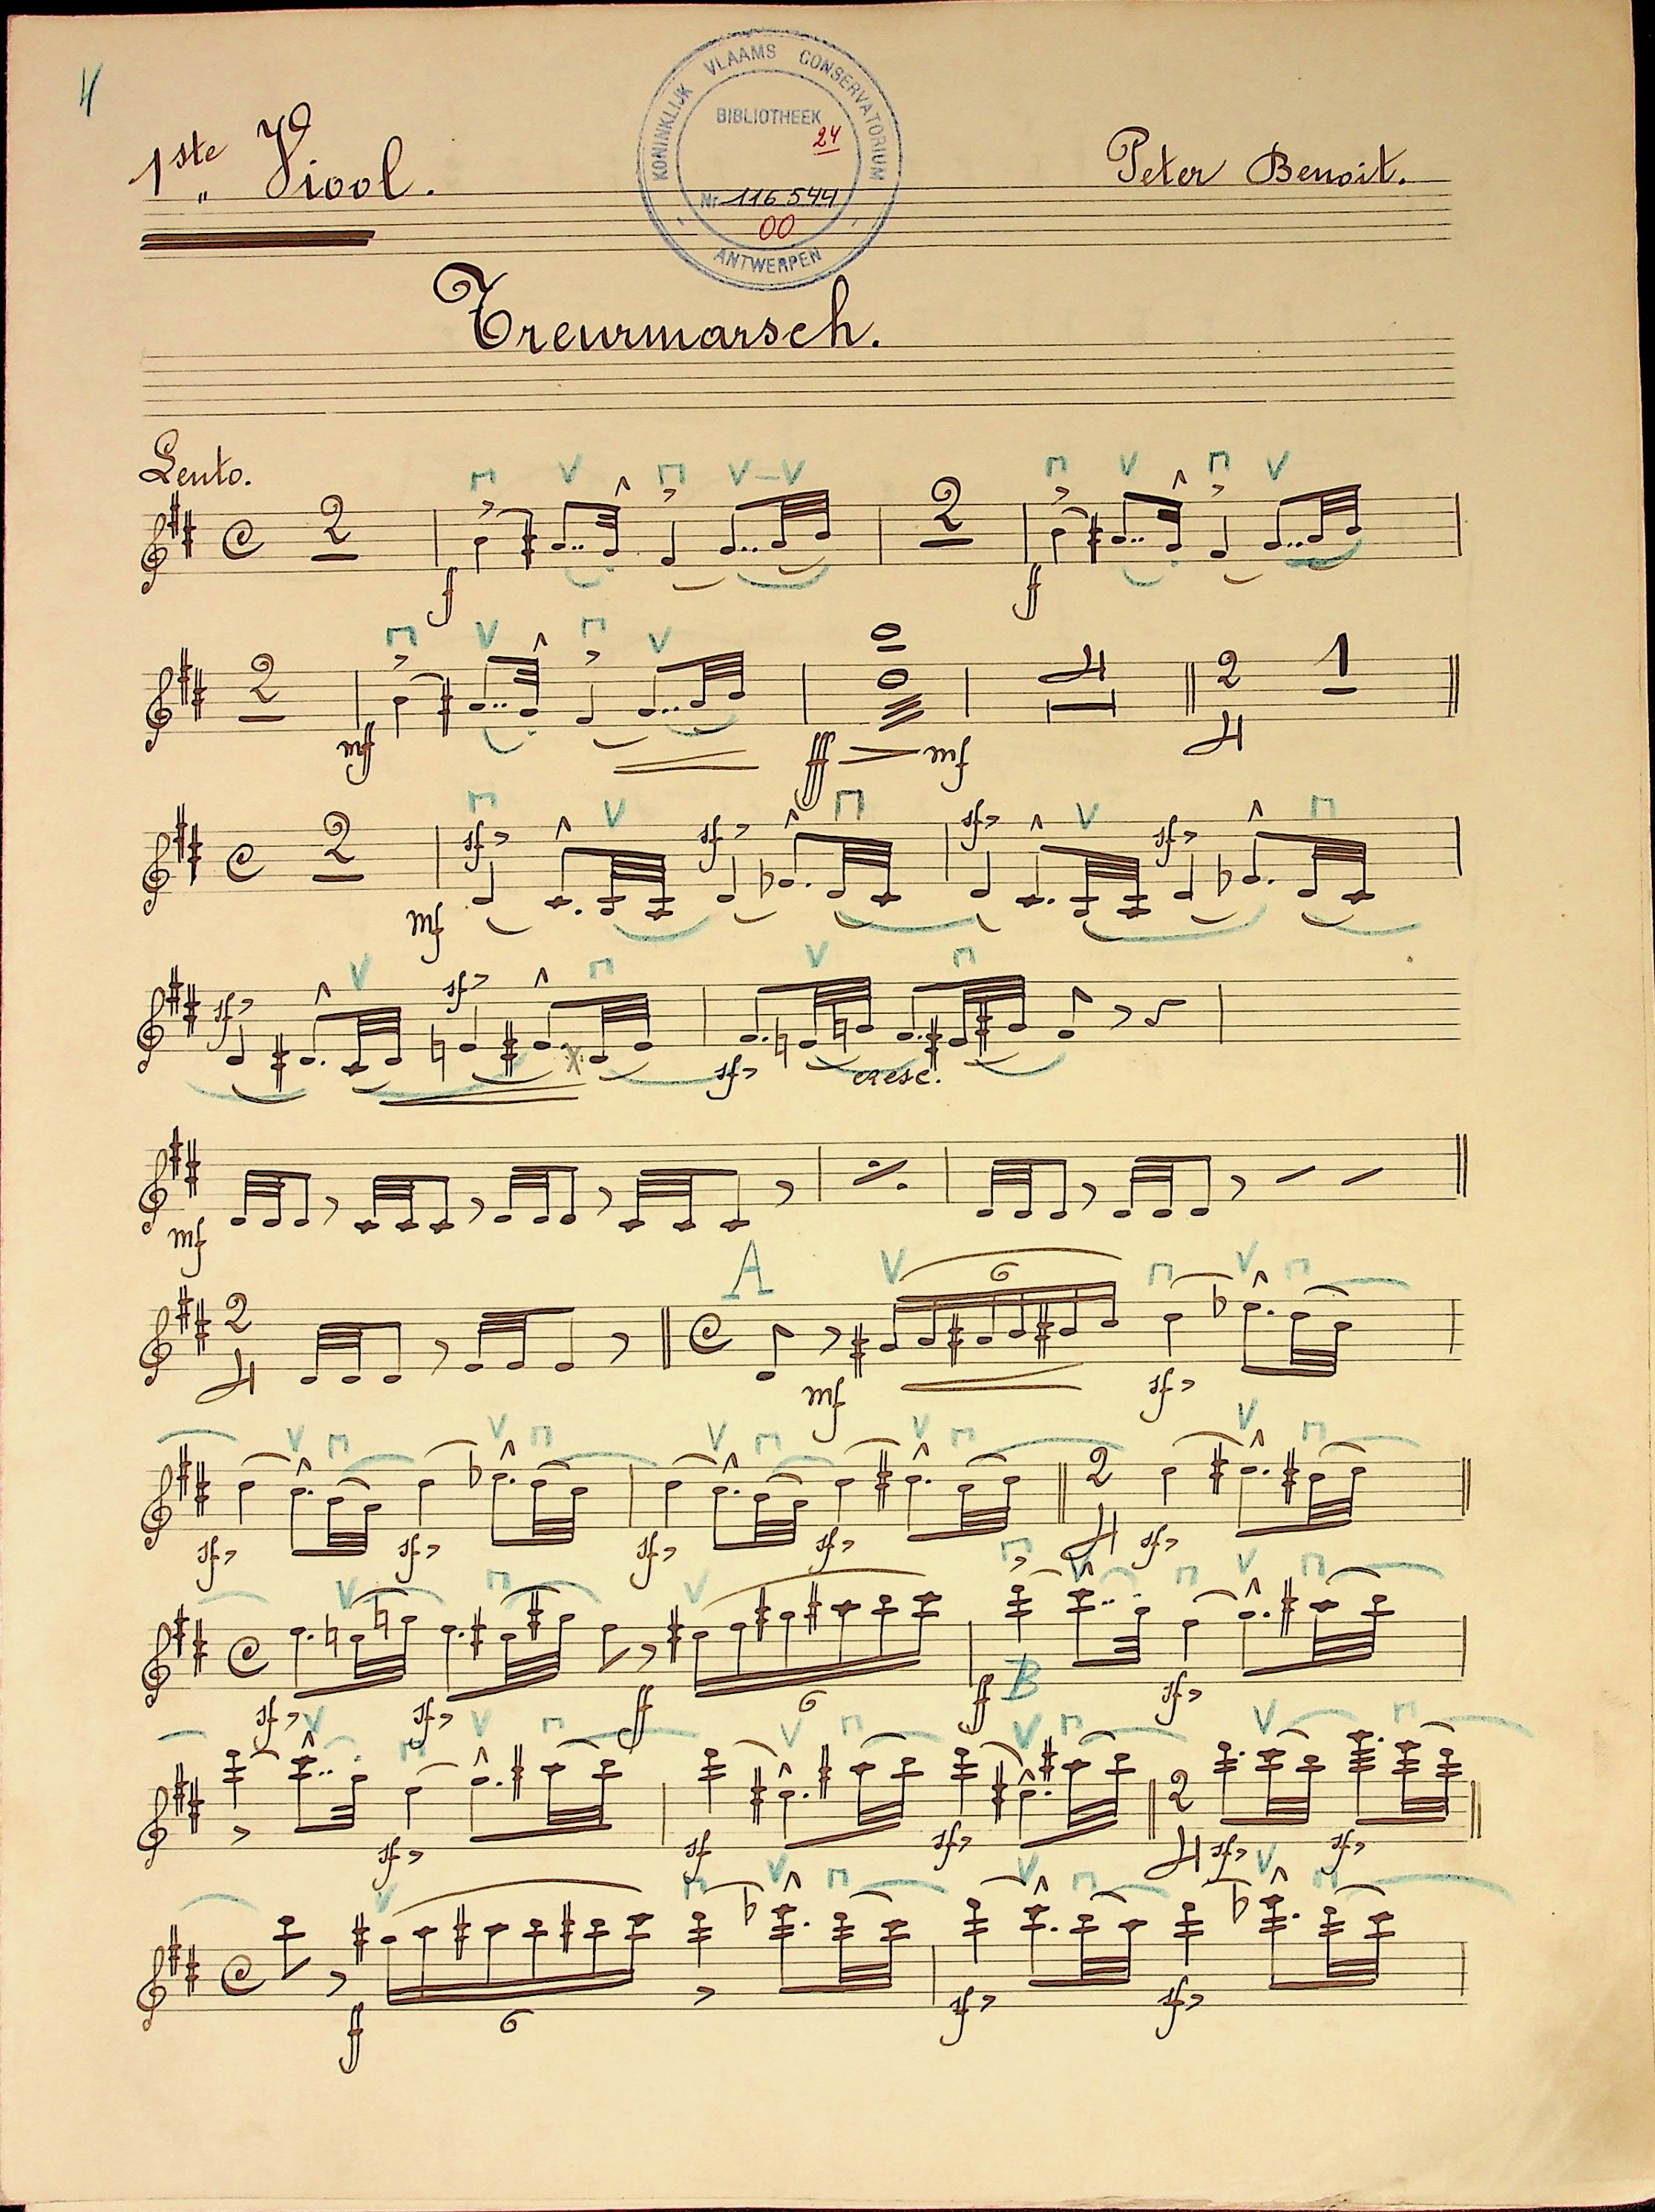 KONINKLIJK VLAAMS CONSERVATORIUM
BIBLIOTHEEK
24
Nr 116 544
00
- ANTWERPEN -
1ste Viool.
Peter Benoit.
Treurmarsch.
Lento.
2 2
f f
2 4 2 4 1
mf ff mf
2
sf> sf> sf> sf>
mf
sf> sf>
sf> cresc.
mf
A
2 4 6
mf sf>
2 4
sf> sf> sf> sf> sf>
sf> sf> ff 6 ff B sf>
2 4
sf> sf sf> sf> sf>
ff 6 sf> sf>